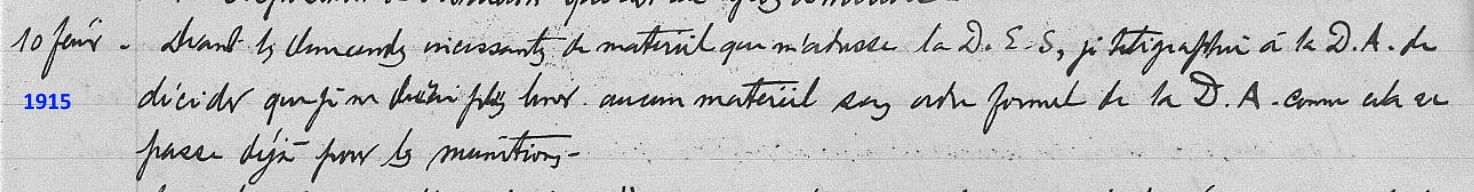 10 févr - Devant les demandes incessantes de matériel que m'adresse la D.E.S, je télégraphie à la D.A. de
1915 décider que je ne livrer aucun matériel sans ordre formel de la D.A. comme cela se
passe déjà pour les munitions -